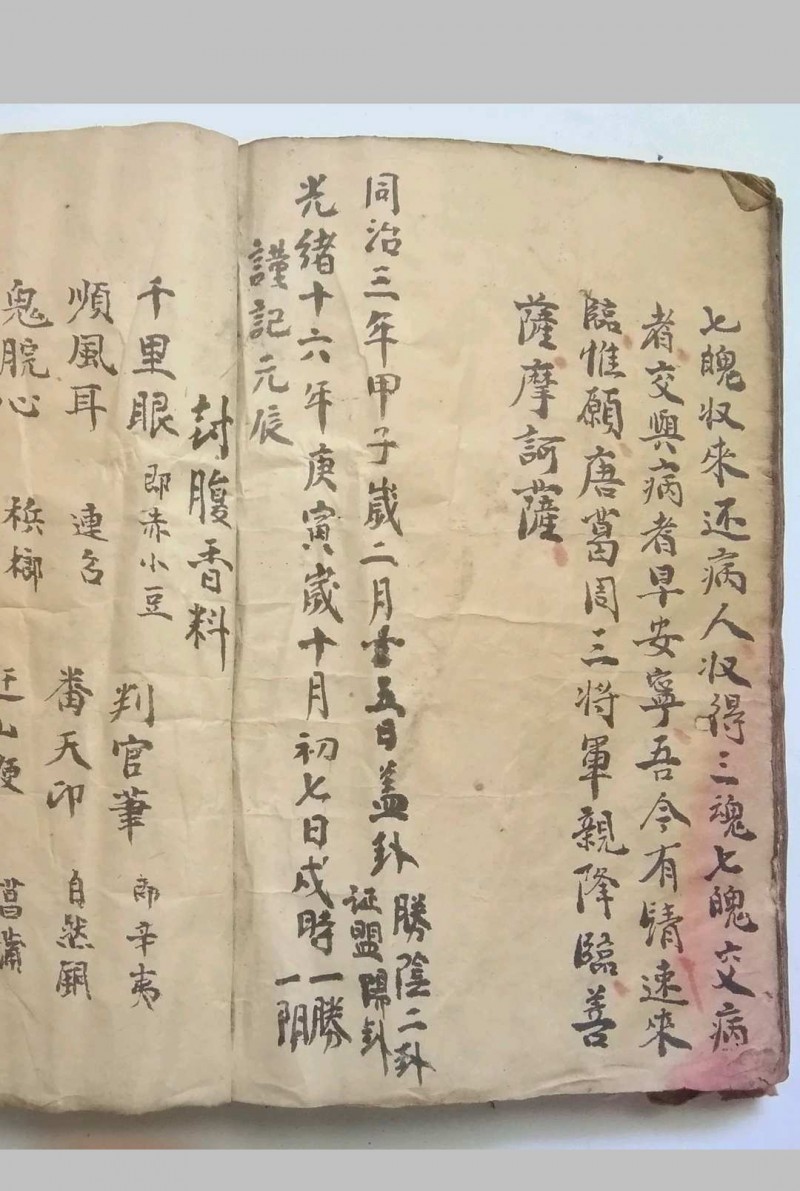 七魄収來还病人収得三魂七魄交病
者交與病者早安寧吾今有請速來
臨惟願唐葛周三將軍親降臨善
薩摩訶薩
同治三年甲子歲二月廿五日盖卦
勝陰二卦
证盟陽卦
光緒十六年庚寅歲十月初七日戍時
一勝
一阴
謹記元辰
封腹香料
千里眼 即赤小豆 判官筆 即辛夷
順風耳 連召 番天印 自然銅
鬼腕心 梹榔 菖蒲